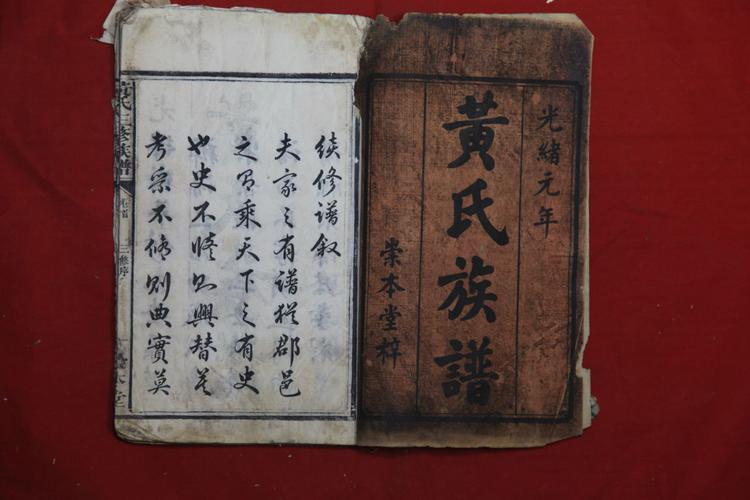 光緒元年
黃氏族譜
崇本堂梓
續修譜叙
夫家之有譜猶郡邑
之有乘天下之有史
也史不修則興替莫
考乘不修則典實莫
黃氏三修族譜
卷首
三修序